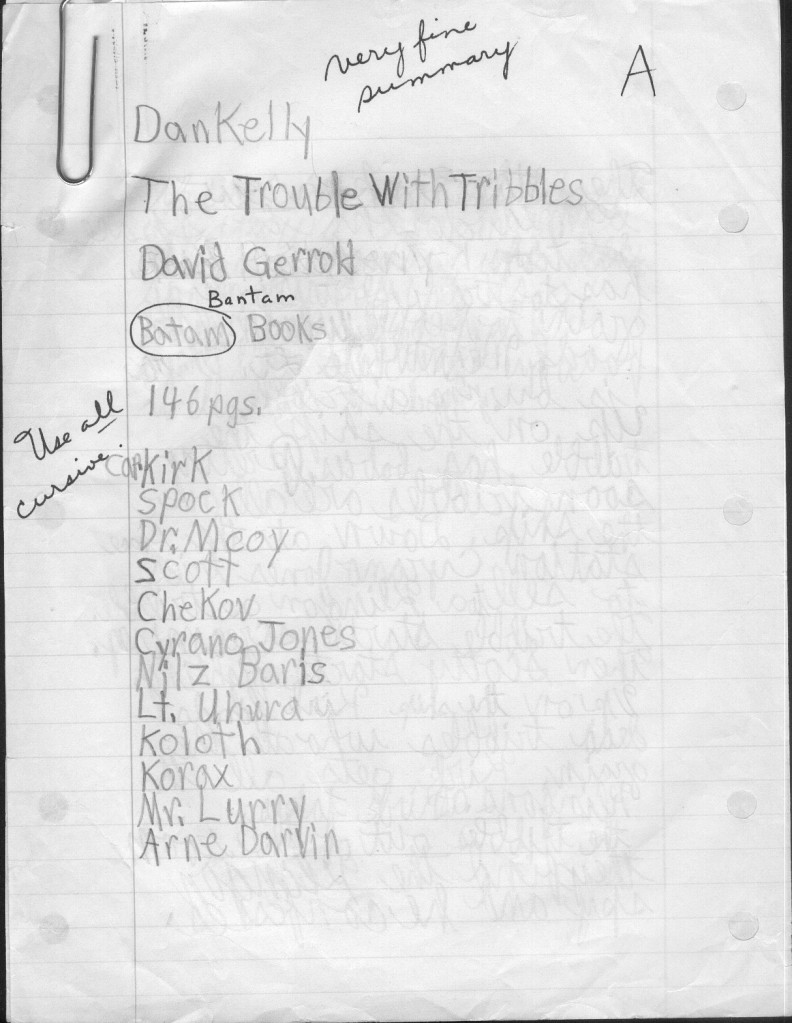 very fine
summary
A
Dan Kelly
The Trouble With Tribbles
David Gerrold
Bantam
Batam Books
146 pgs.
Use all
cursive.
Cap. Kirk
Spock
Dr. Mcoy
Scott
Chekov
Cyrano Jones
Nilz Baris
Lt. Uhura
Koloth
Korax
Mr. Lurry
Arne Darvin